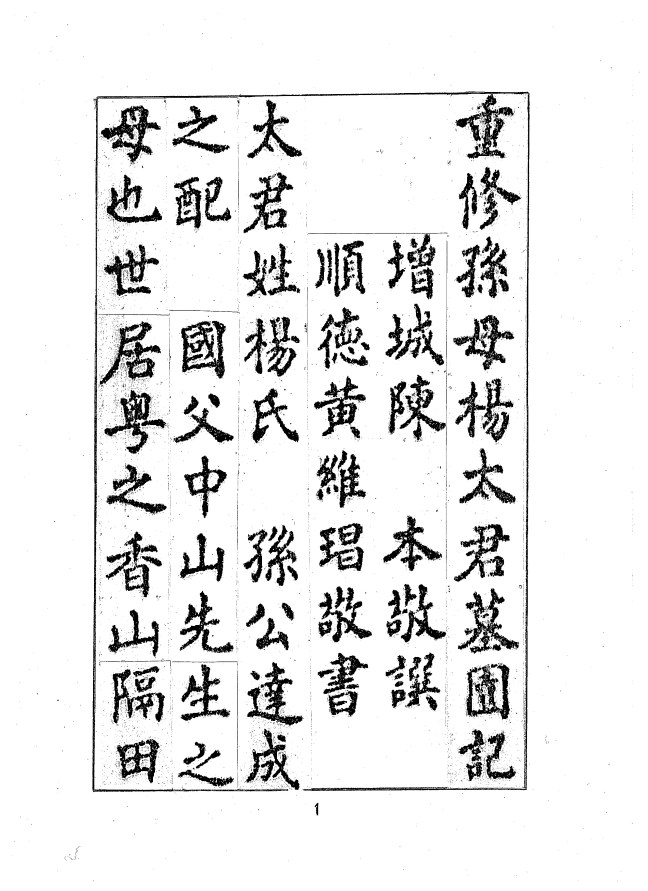 重修孫母楊太君墓園記
增城陳　本敬譔
順德黃維琩敬書
太君姓楊氏　孫公達成
之配　國父中山先生之
母也世居粵之香山隔田
1